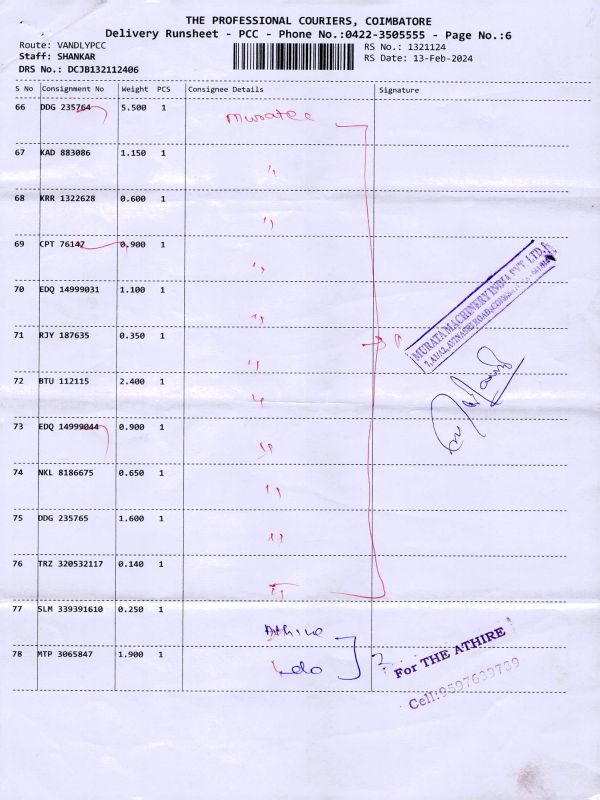 THE PROFESSIONAL COURIERS, COIMBATORE
Delivery Runsheet - PCC - Phone No.:0422-3505555 - Page No.:6
Route: VANDLYPCC RS No.: 1321124
Staff: SHANKAR RS Date: 13-Feb-2024
DRS No.: DCJB132112406
S No Consignment No Weight PCS Consignee Details Signature
66 DDG 235764 5.500 1 Muratec
67 KAD 883086 1.150 1 "
68 KRR 1322628 0.600 1 "
69 CPT 76147 0.900 1 "
70 EDQ 14999031 1.100 1 "
71 RJY 187635 0.350 1 "
72 BTU 112115 2.400 1 "
73 EDQ 14999044 0.900 1 "
74 NKL 8186675 0.650 1 "
75 DDG 235765 1.600 1 "
76 TRZ 320532117 0.140 1 "
77 SLM 339391610 0.250 1 Athire
78 MTP 3065847 1.900 1 do
MURATA MACHINERY INDIA PVT. LTD.,
For THE ATHIRE
Cell:9597639739